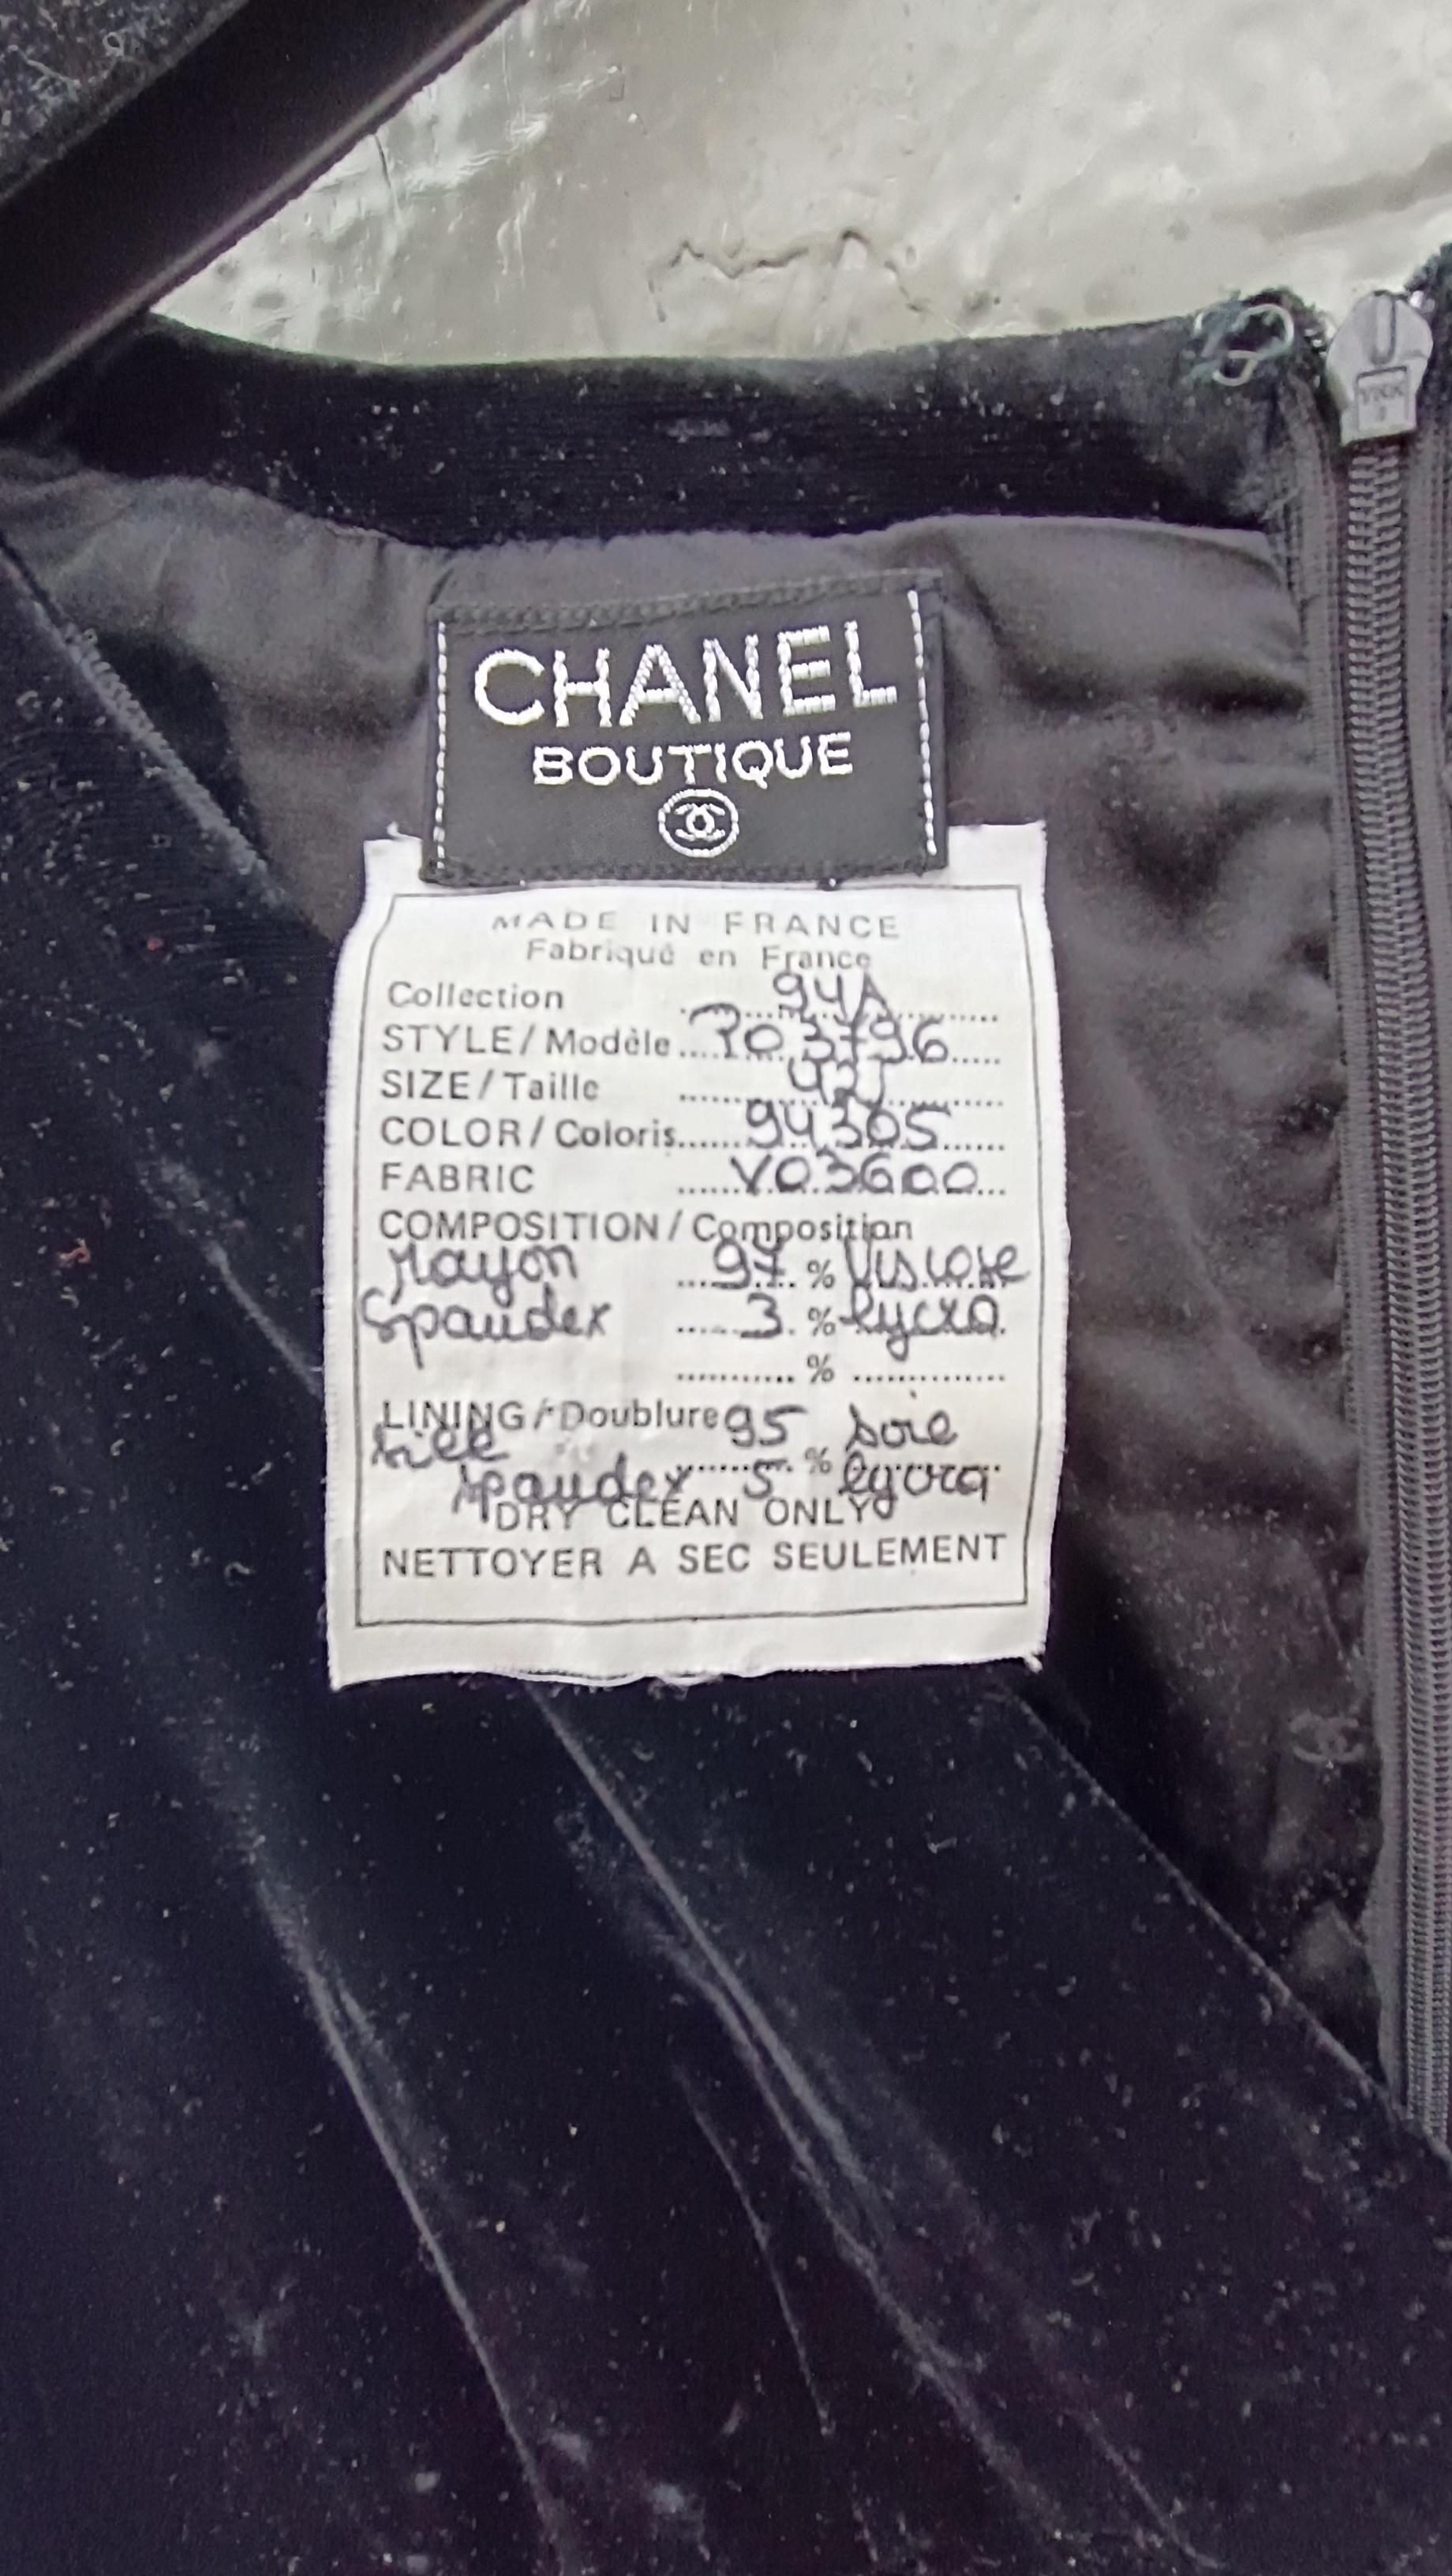 YKK
CHANEL
BOUTIQUE
MADE IN FRANCE
Fabriqué en France
Collection ........94A........
STYLE/Modèle....P03796.....
SIZE/Taille ........42J........
COLOR/Coloris......94305......
FABRIC ......V03600...
COMPOSITION/Composition
rayon ....97..% Viscose
Spandex .....3.% lycra
...........% .............
LINING/Doublure 95 soie
silk ........% ........
spandex 5 lycra
DRY CLEAN ONLY
NETTOYER A SEC SEULEMENT